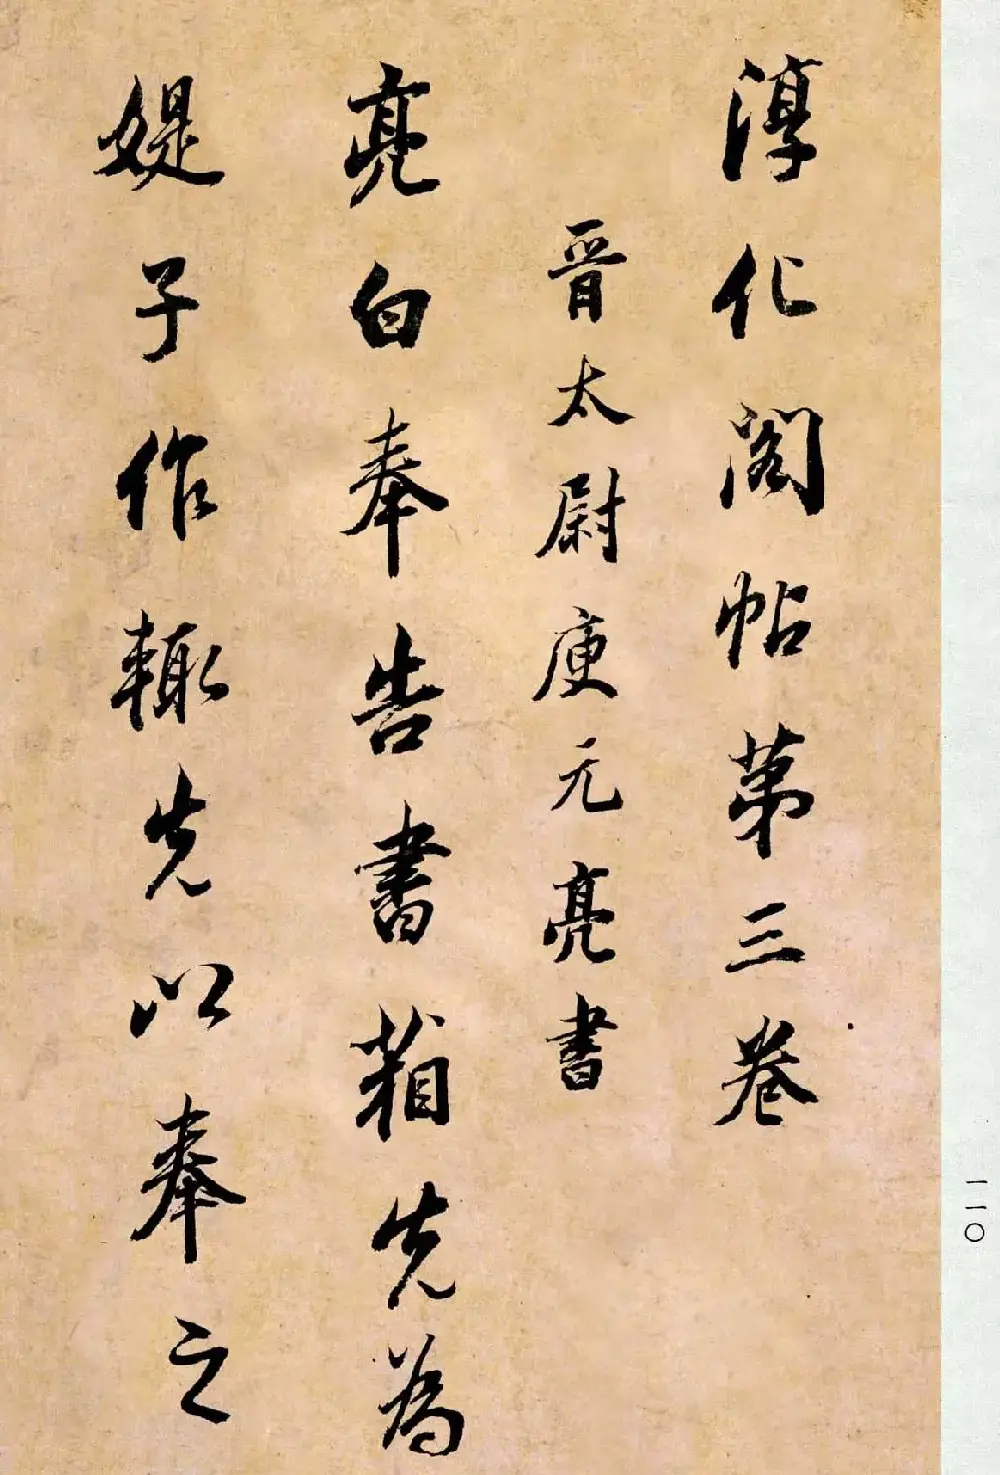 淳化阁帖第三卷
晋太尉庾元亮書
亮白奉告書箱先為
媞子作輙先以奉之
一一〇